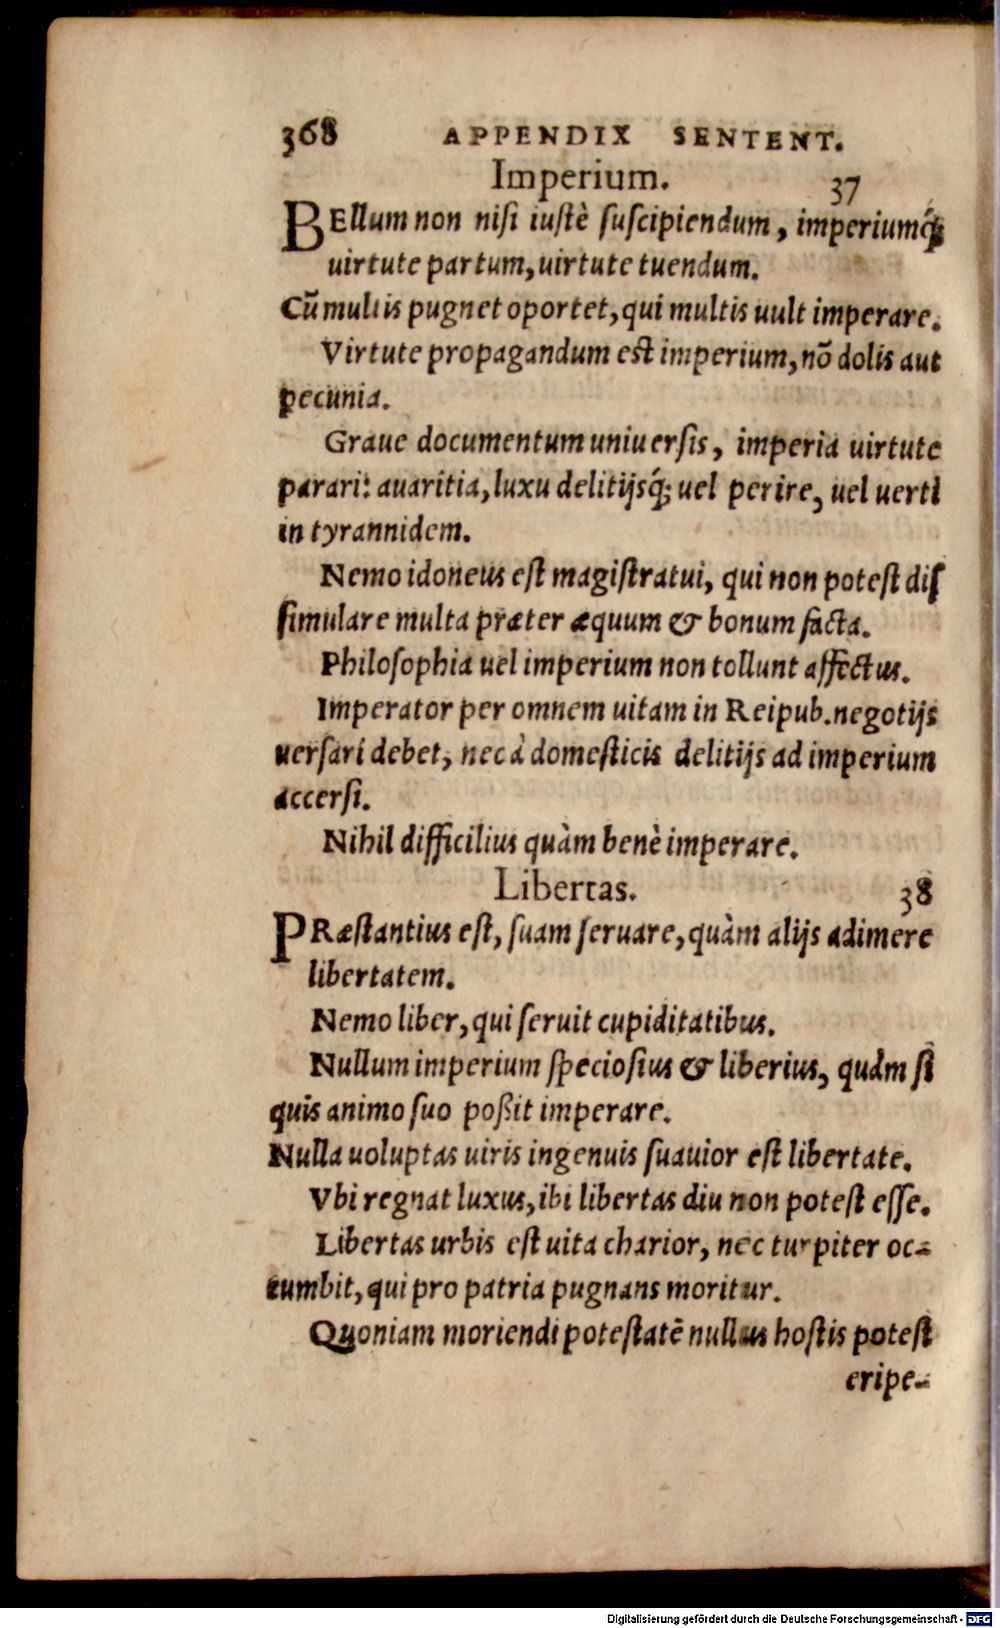 368 APPENDIX SENTENT.
Imperium. 37
BEllum non niſi iuſtè ſuſcipiendum, imperiumq́;
uirtute partum, uirtute tuendum.
Cũ multis pugnet oportet, qui multis uult imperare.
Virtute propagandum eſt imperium, nõ dolis aut
pecunia.
Graue documentum uniuerſis, imperia uirtute
parari: auaritia, luxu delitijsq́; uel perire, uel uerti
in tyrannidem.
Nemo idoneus eſt magiſtratui, qui non poteſt diſ
ſimulare multa præter æquum & bonum facta.
Philoſophia uel imperium non tollunt affectus.
Imperator per omnem uitam in Reipub. negotijs
uerſari debet, nec à domeſticis delitijs ad imperium
accerſi.
Nihil difficilius quàm benè imperare.
Libertas. 38
PRæſtantius eſt, ſuam ſeruare, quàm alijs adimere
libertatem.
Nemo liber, qui ſeruit cupiditatibus.
Nullum imperium ſpecioſius & liberius, quàm ſi
quis animo ſuo poßit imperare.
Nulla uoluptas uiris ingenuis ſuauior eſt libertate.
Vbi regnat luxus, ibi libertas diu non poteſt eſſe.
Libertas urbis eſt uita charior, nec turpiter oc-
cumbit, qui pro patria pugnans moritur.
Quoniam moriendi poteſtatē nullus hoſtis poteſt
eripe-
Digitalisierung gefördert durch die Deutsche Forschungsgemeinschaft - DFG